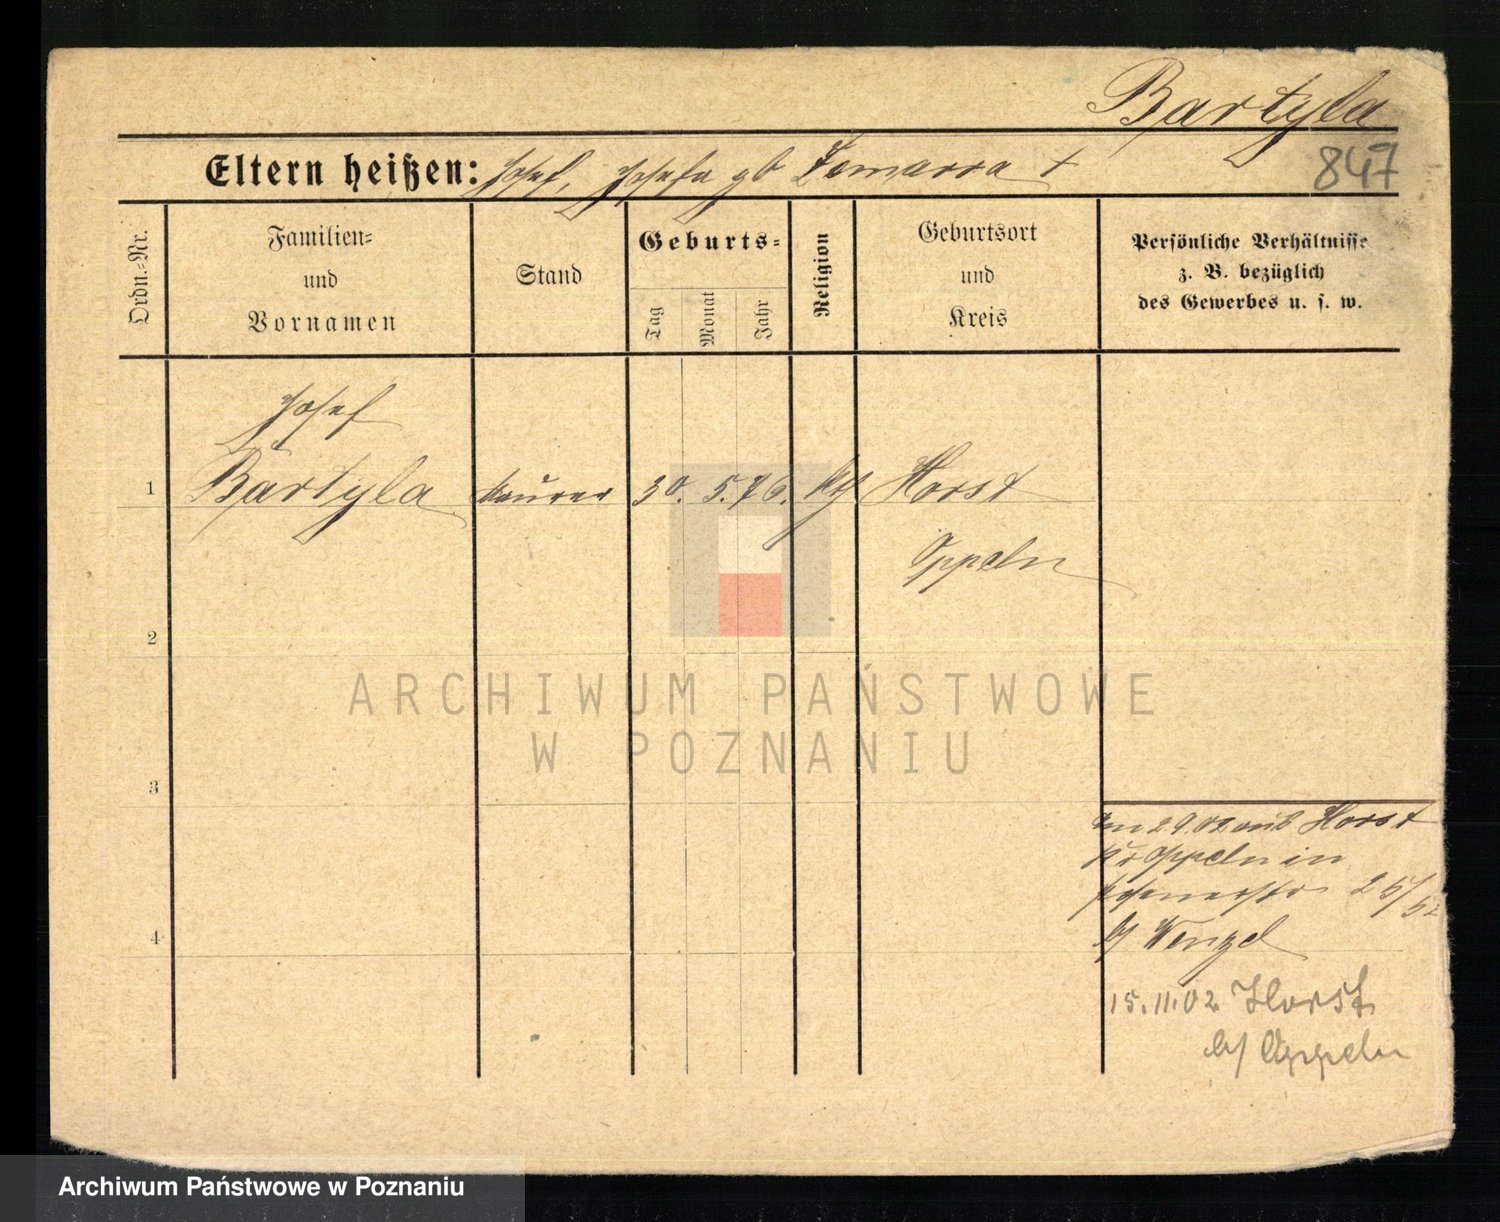 Bartyla
847
Eltern heißen: Josef, Josefa gb Zomarra †
Ordn.=Nr.
Familien=
und
Vornamen
Stand
Geburts=
Tag
Monat
Jahr
Religion
Geburtsort
und
Kreis
Persönliche Verhältnisse
z. B. bezüglich
des Gewerbes u. s. w.
Josef
1 Bartyla Maurer 30. 5. 76. kth Horst
Oppeln
2
3
4
Horst
Kr Oppeln in
Wenzel
15. 11. 02 Horst
b/ Oppeln
ARCHIWUM PAŃSTWOWE
W POZNANIU
Archiwum Państwowe w Poznaniu